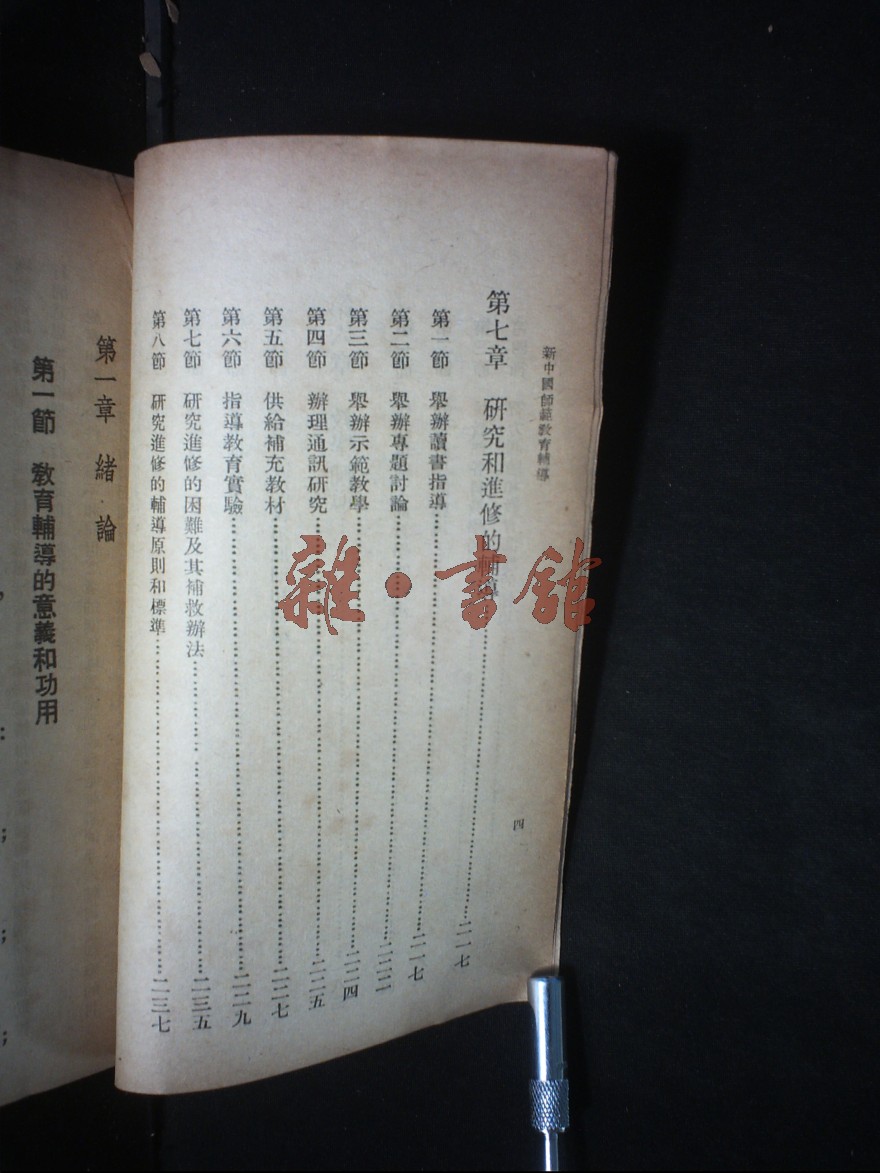 新中國師範教育輔導
第七章 研究和進修的輔導……二一七
第一節 舉辦讀書指導……二一七
第二節 舉辦專題討論……二二二
第三節 舉辦示範教學……二二四
第四節 辦理通訊研究……二二五
第五節 供給補充教材……二二七
第六節 指導教育實驗……二二九
第七節 研究進修的困難及其補救辦法……二三五
第八節 研究進修的輔導原則和標準……二三七
四
第一章 緒論
第一節 教育輔導的意義和功用
雜·書館